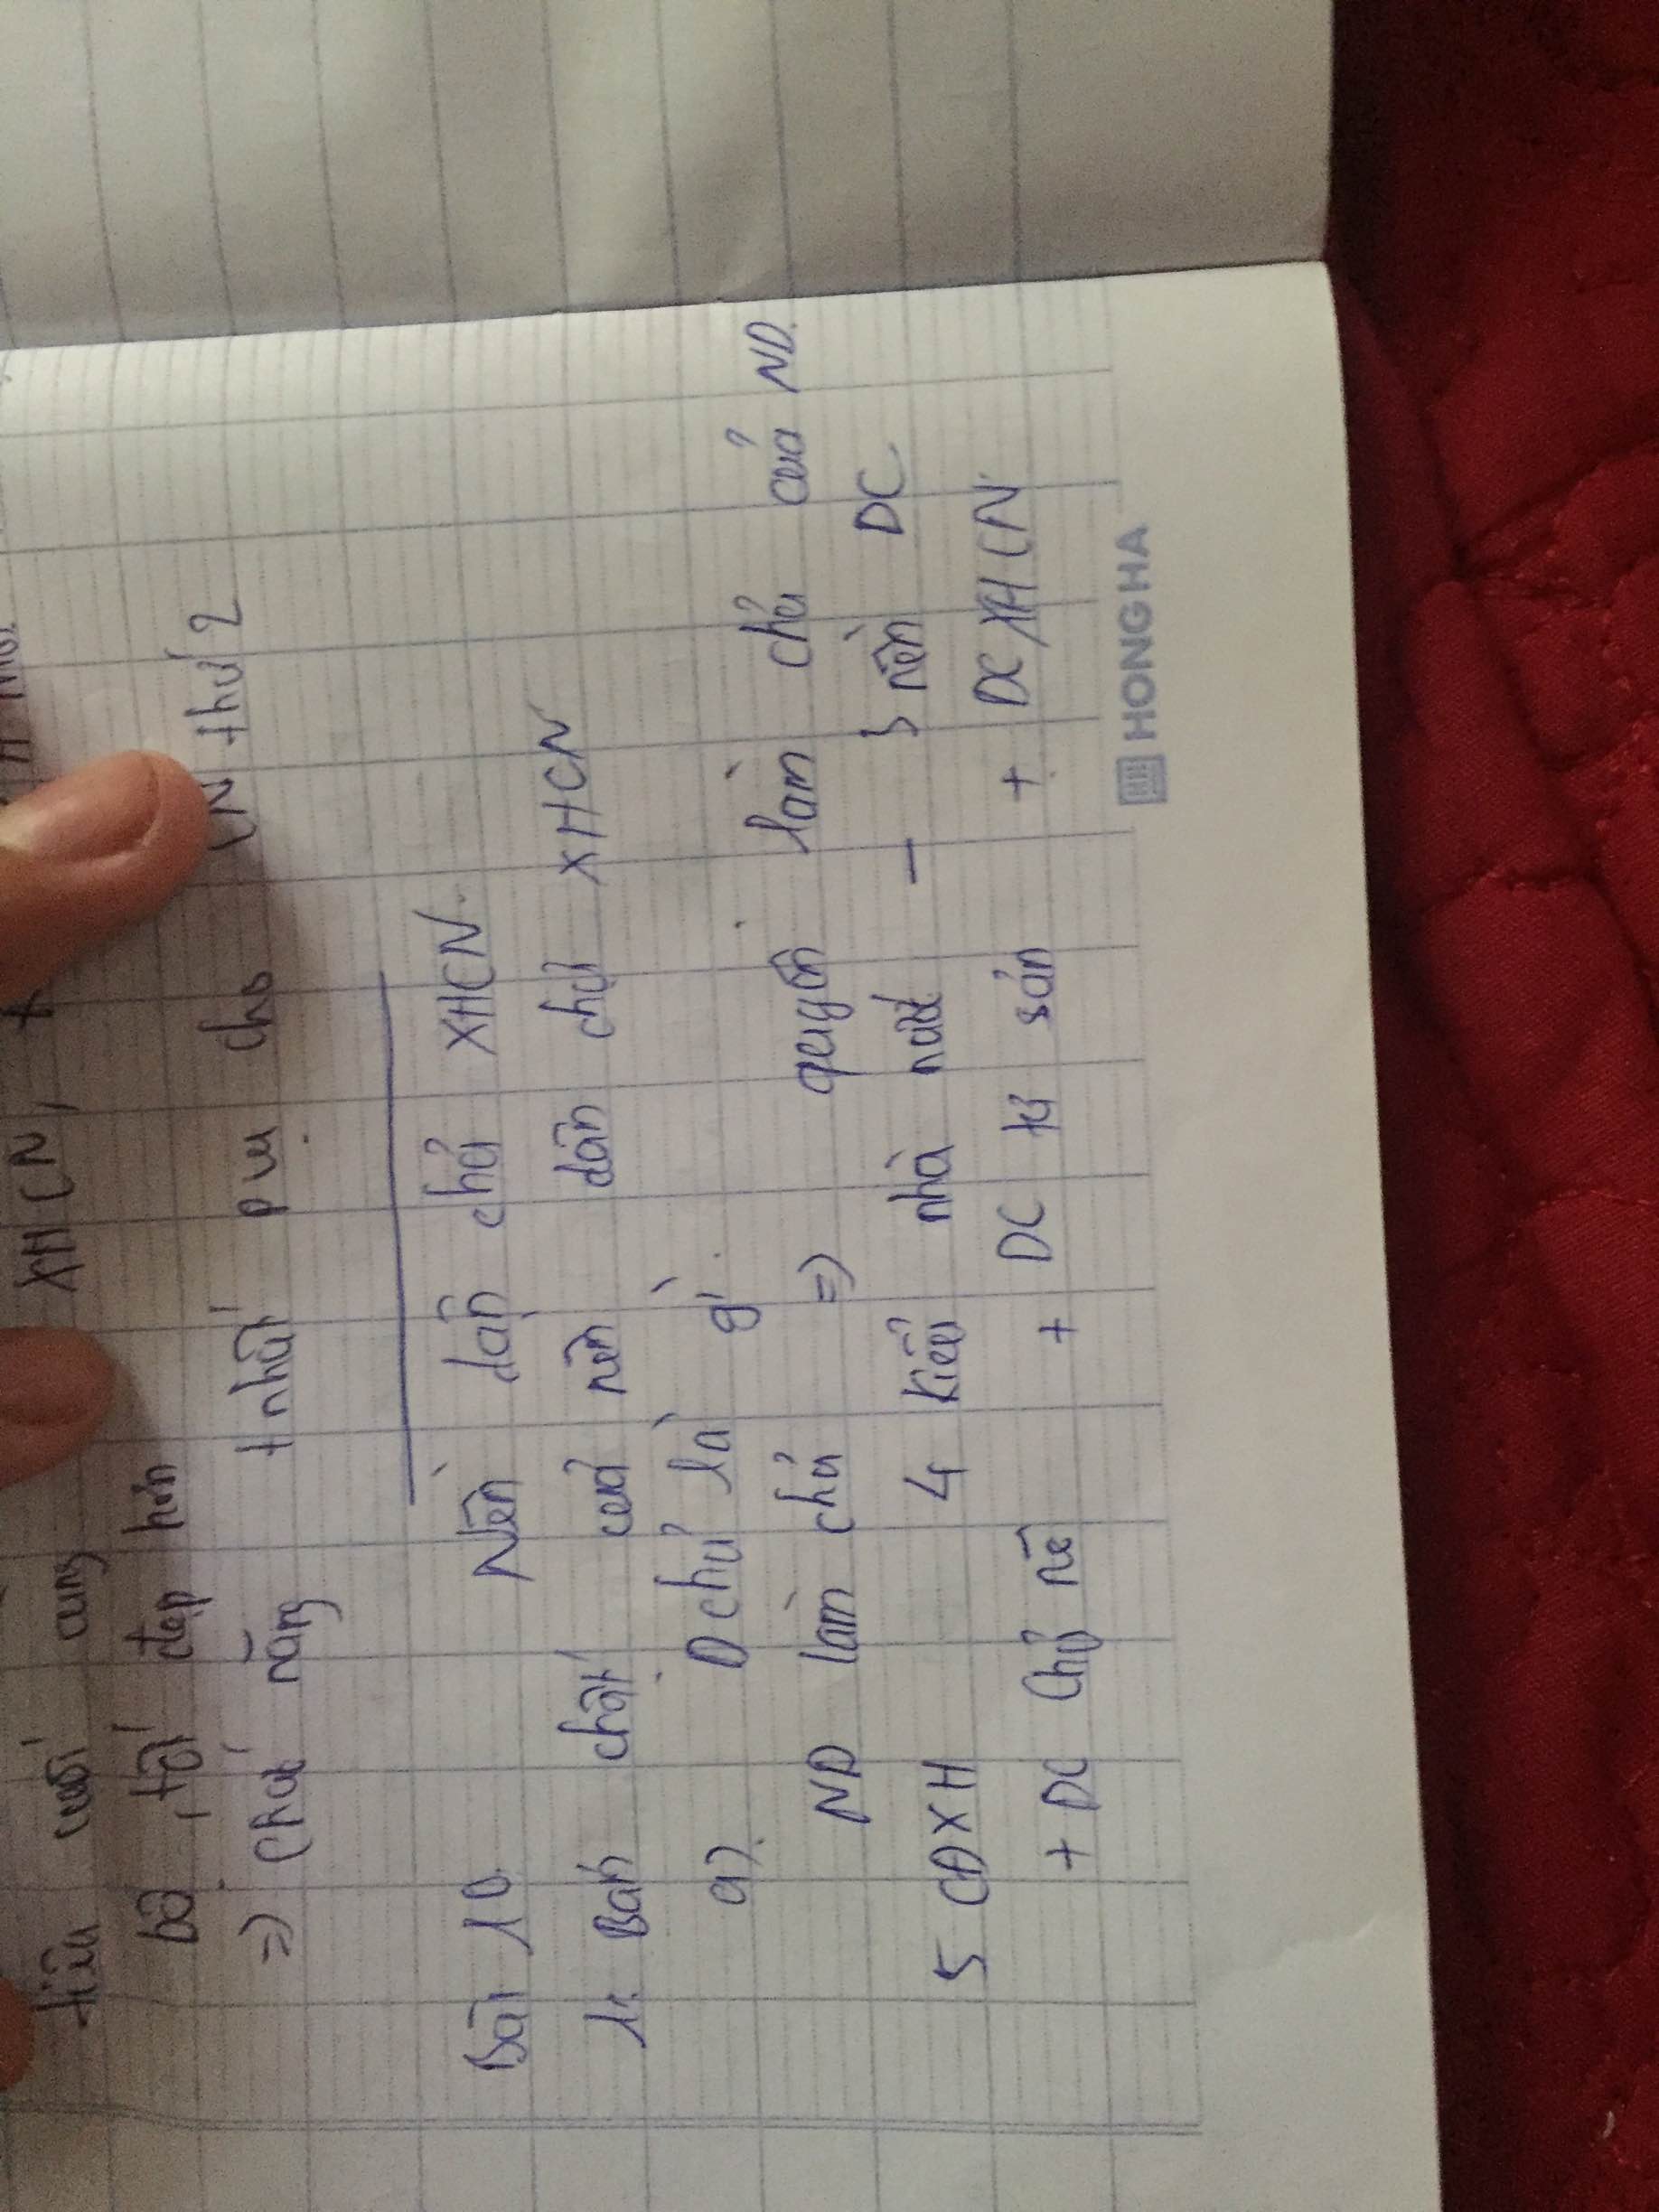 XHCN,
tiêu cuối cùng
bộ, tốt đẹp hơn
=) Chức năng t nhất pụ cho CN thứ 2
Bài 10 Nền dân chủ XHCN.
1: Bản chất của nền dân chủ XHCN
a). D chủ là gì.
ND làm chủ =) quyền làm chủ của ND.
5 CĐXH 4 kiểu nhà nước – 3 nền DC
+ DC Chủ nô + DC tư sản + DC XHCN
HONG HA